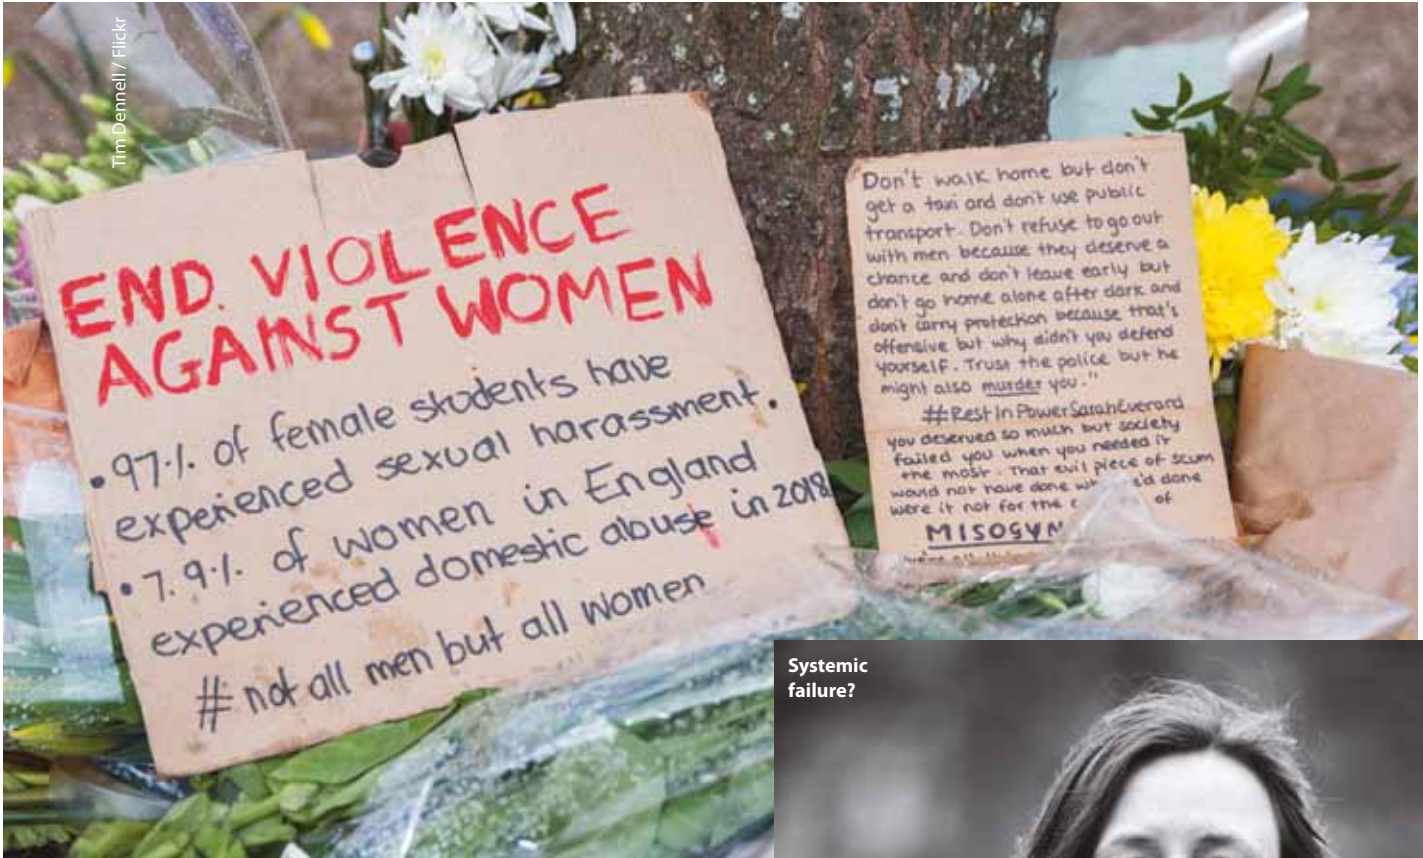 Tim Dennell / Flickr
END. VIOLENCE
AGAINST WOMEN
• 97% of female students have
experienced sexual harassment.
• 7.9% of women in England
experienced domestic abuse in 2018
# not all men but all women
Don't walk home but don't
get a taxi and don't use public
transport. Don't refuse to go out
with men because they deserve a
chance and don't leave early but
don't go home alone after dark and
don't carry protection because that's
offensive but why didn't you defend
yourself. Trust the police but he
might also murder you."
#RestInPowerSarahEverard
you deserved so much but society
failed you when you needed it
the most. That evil piece of scum
would not have done
were it not for the
of
Systemic
failure?